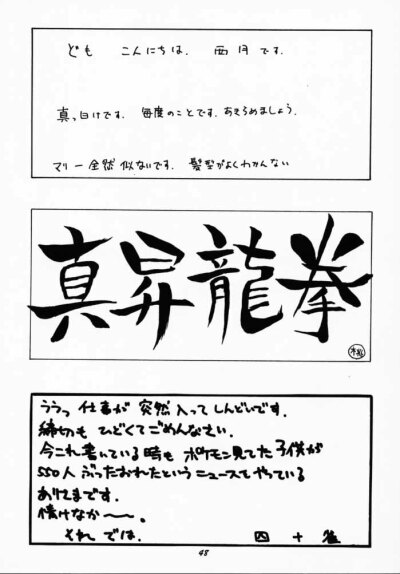 ども こんにちは. 西月です.
真っ白けです. 毎度のことです. あきらめましょう.
マリー全然似ないです. 髪型がよくわかんない
真昇龍拳
ううっ 仕事が突然入ってしんどいです.
締切もひどくてごめんなさい.
今これ書いている時もポケモン見てた子供が
550人ぶったおれたというニュースをやっている
ありさまです.
情けなか〜〜.
それでは. 四十雀
48